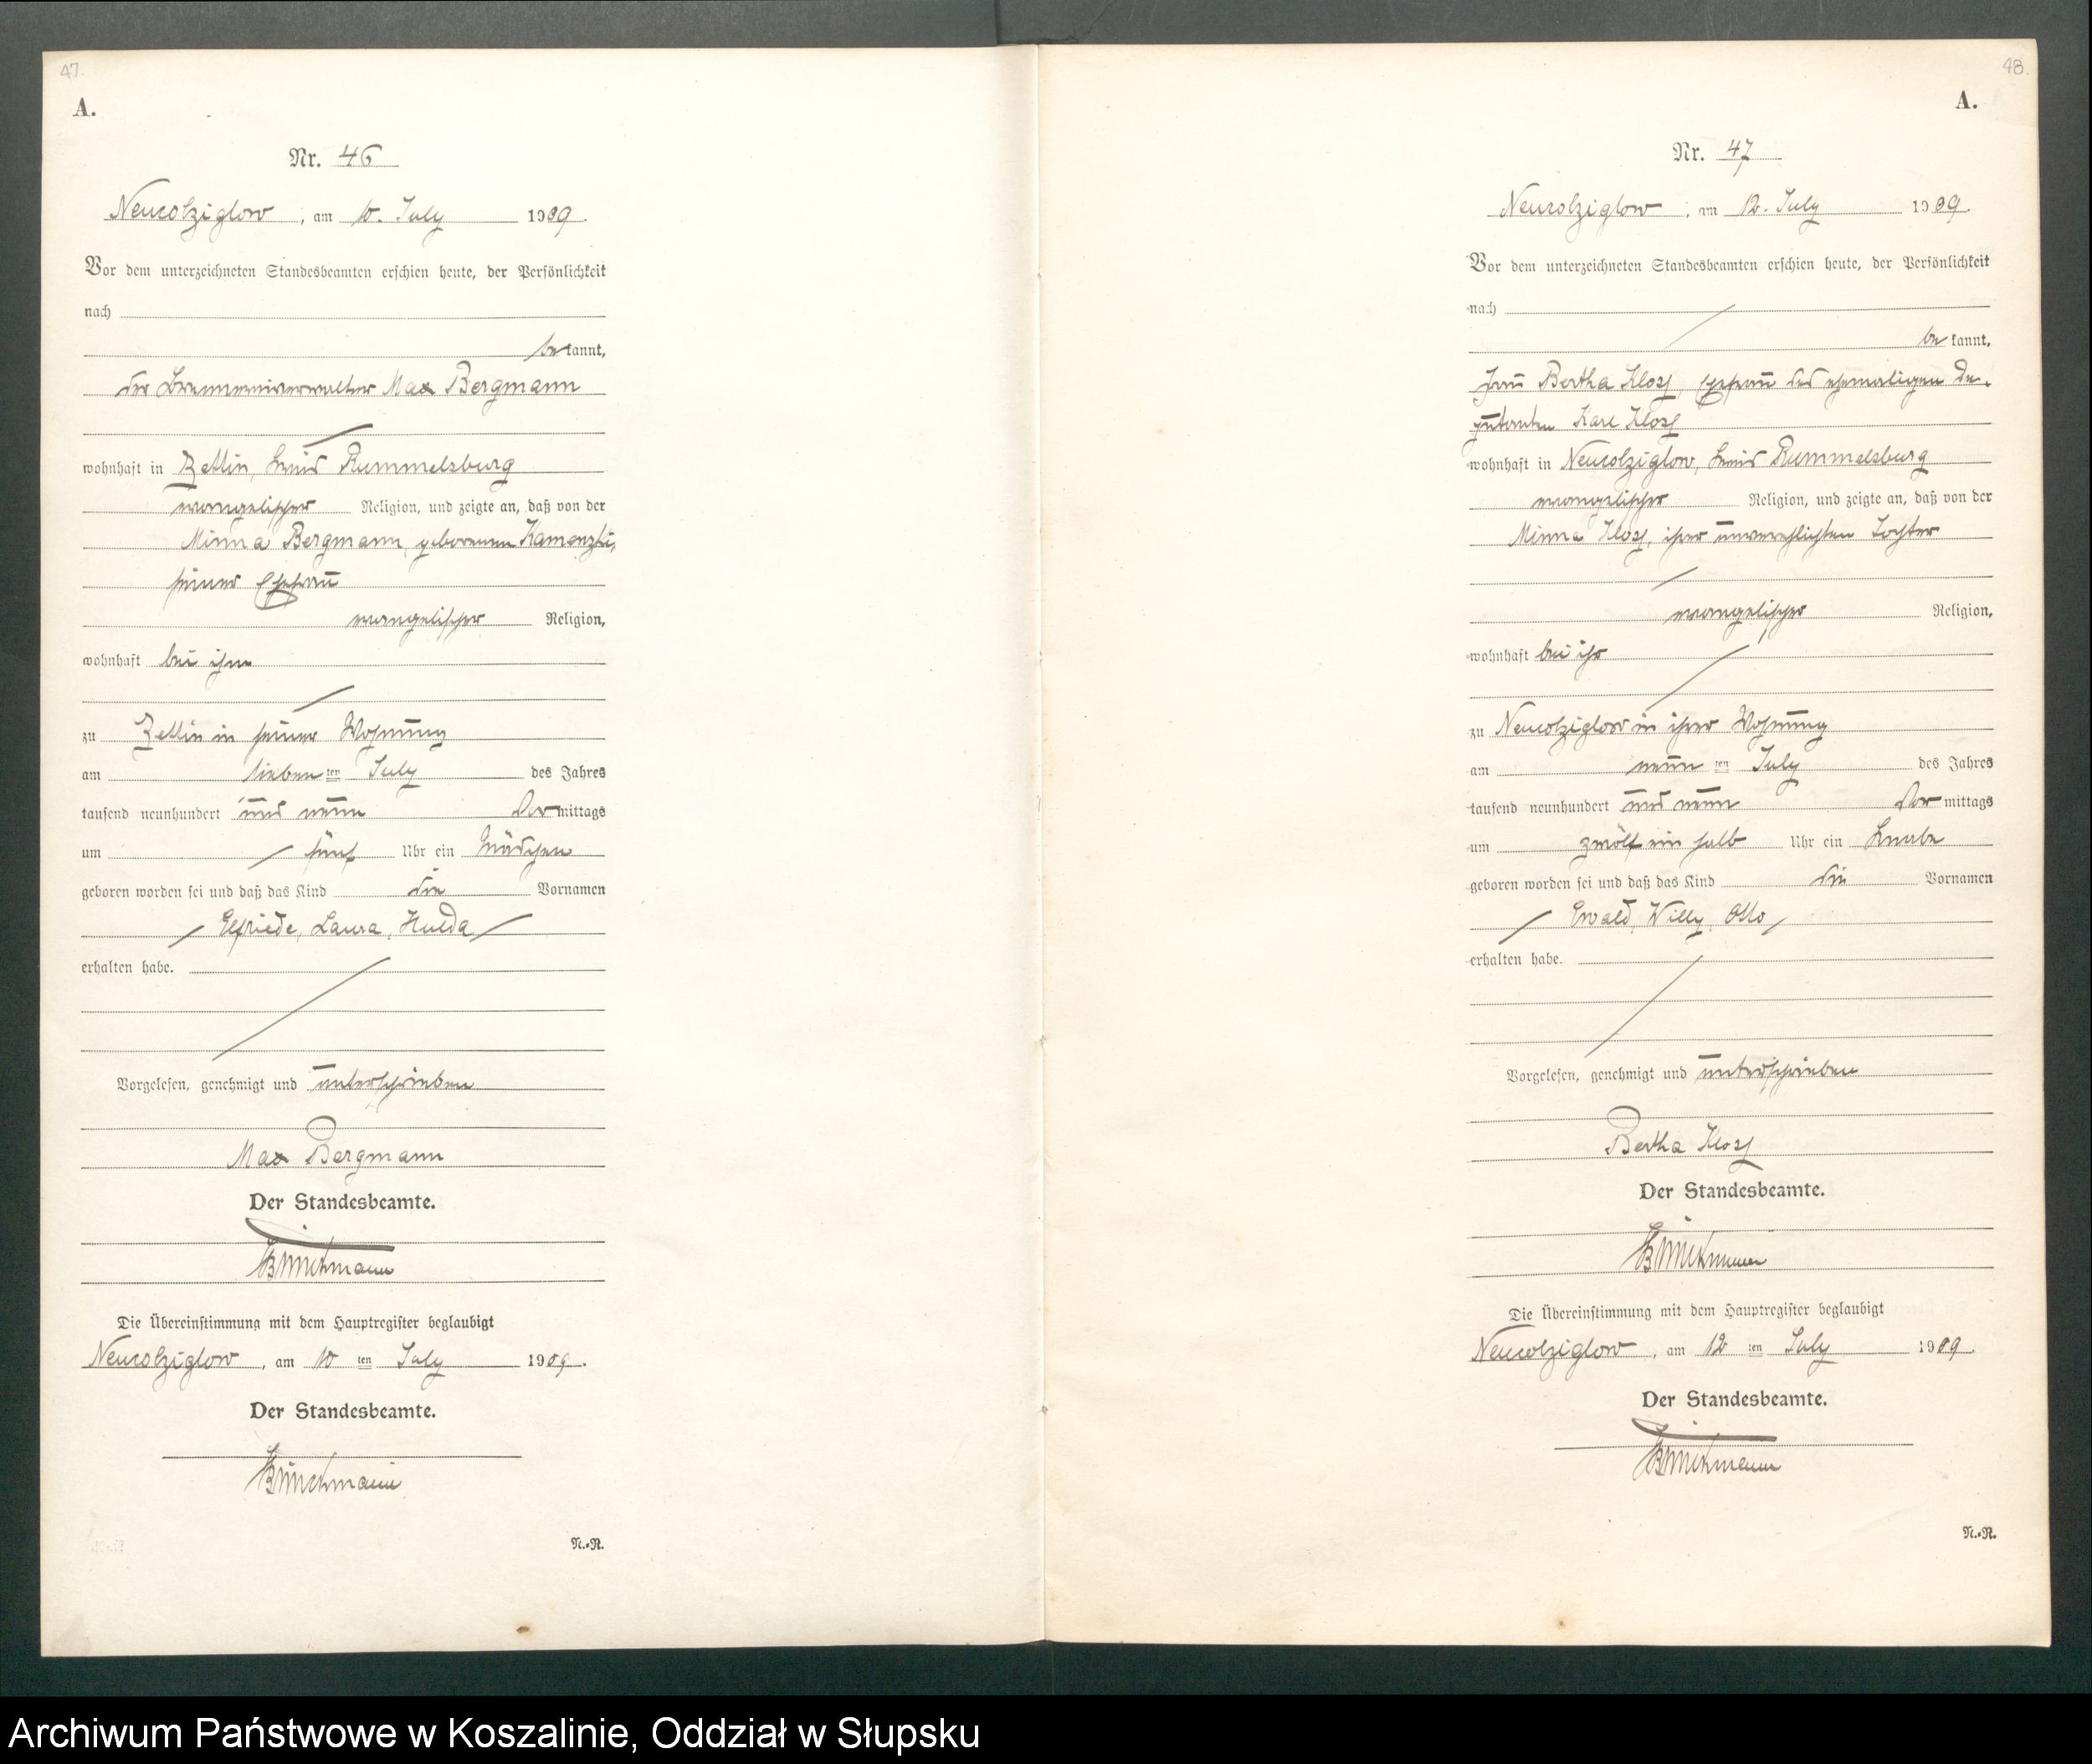 47.
A.
Nr. 46
Neucolziglow, am 10. July 1909.
Vor dem unterzeichneten Standesbeamten erschien heute, der Persönlichkeit
nach
bekannt,
der Brennereiverwalter Max Bergmann
wohnhaft in Zettin, Kreis Rummelsburg
evangelischer Religion, und zeigte an, daß von der
Minna Bergmann, geborenen
seiner Ehefrau
evangelischer Religion,
wohnhaft bei ihm
zu Zettin in seiner Wohnung
am sieben ten July des Jahres
tausend neunhundert und neun Vormittags
um fünf Uhr ein Mädchen
geboren worden sei und daß das Kind die Vornamen
Elfriede, Laura, Hulda
erhalten habe.
Vorgelesen, genehmigt und unterschrieben
Max Bergmann
Der Standesbeamte.
Die Übereinstimmung mit dem Hauptregister beglaubigt
Neucolziglow, am 10 ten July 1909.
Der Standesbeamte.
N.-R.
48.
A.
Nr. 47
Neucolziglow, am 12. July 1909.
Vor dem unterzeichneten Standesbeamten erschien heute, der Persönlichkeit
nach
bekannt,
Frau Bertha Kloss, Ehefrau des ehemaligen De-
putanten Karl Kloss
wohnhaft in Neucolziglow, Kreis Rummelsburg
evangelischer Religion, und zeigte an, daß von der
Minna Kloss, ihrer unverehlichten Tochter
evangelischer Religion,
wohnhaft bei ihr
zu Neucolziglow in ihrer Wohnung
am neun ten July des Jahres
tausend neunhundert und neun Vormittags
um zwölf ein halb Uhr ein Knabe
geboren worden sei und daß das Kind die Vornamen
Ewald, Willy, Otto
erhalten habe.
Vorgelesen, genehmigt und unterschrieben
Bertha Kloss
Der Standesbeamte.
Die Übereinstimmung mit dem Hauptregister beglaubigt
Neucolziglow, am 12 ten July 1909.
Der Standesbeamte.
N.-R.
Archiwum Państwowe w Koszalinie, Oddział w Słupsku